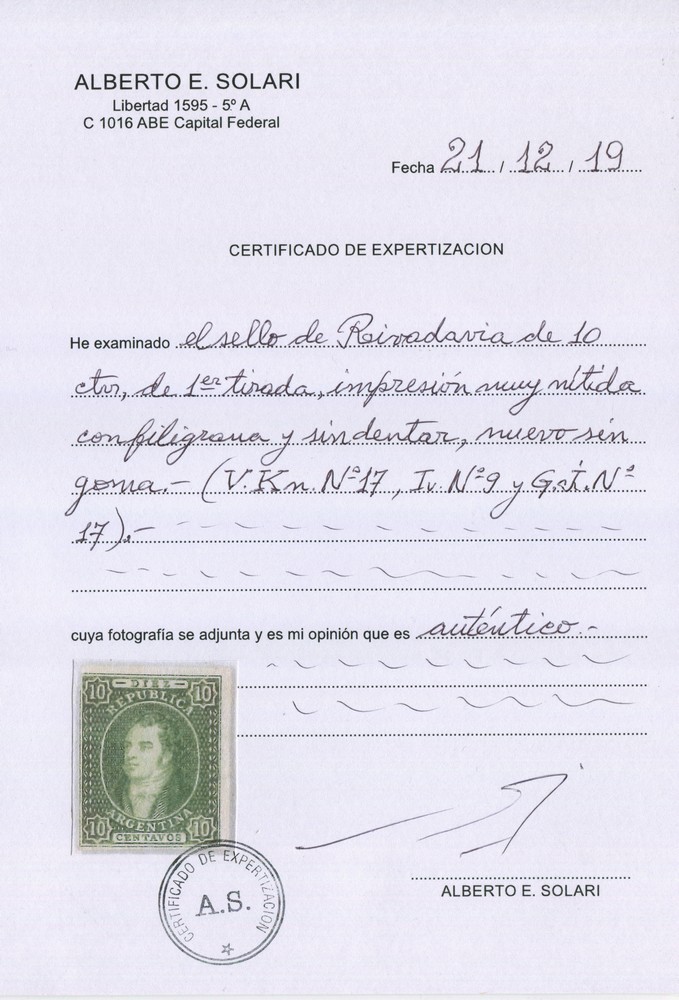 ALBERTO E. SOLARI
Libertad 1595 - 5º A
C 1016 ABE Capital Federal
Fecha 21 / 12 / 19
CERTIFICADO DE EXPERTIZACION
He examinado el sello de Reivadavia de 10
ctvs, de 1er tirada, impresión muy nítida
con filigrana y sin dentar, nuevo sin
goma.- (V. Kn. Nº17, Iv. Nº9 y G.J. Nº
17).-
cuya fotografía se adjunta y es mi opinión que es auténtico.-
10 DIEZ 10
REPUBLICA
ARGENTINA
10 CENTAVOS 10
CERTIFICADO DE EXPERTIZACION
A.S.
ALBERTO E. SOLARI